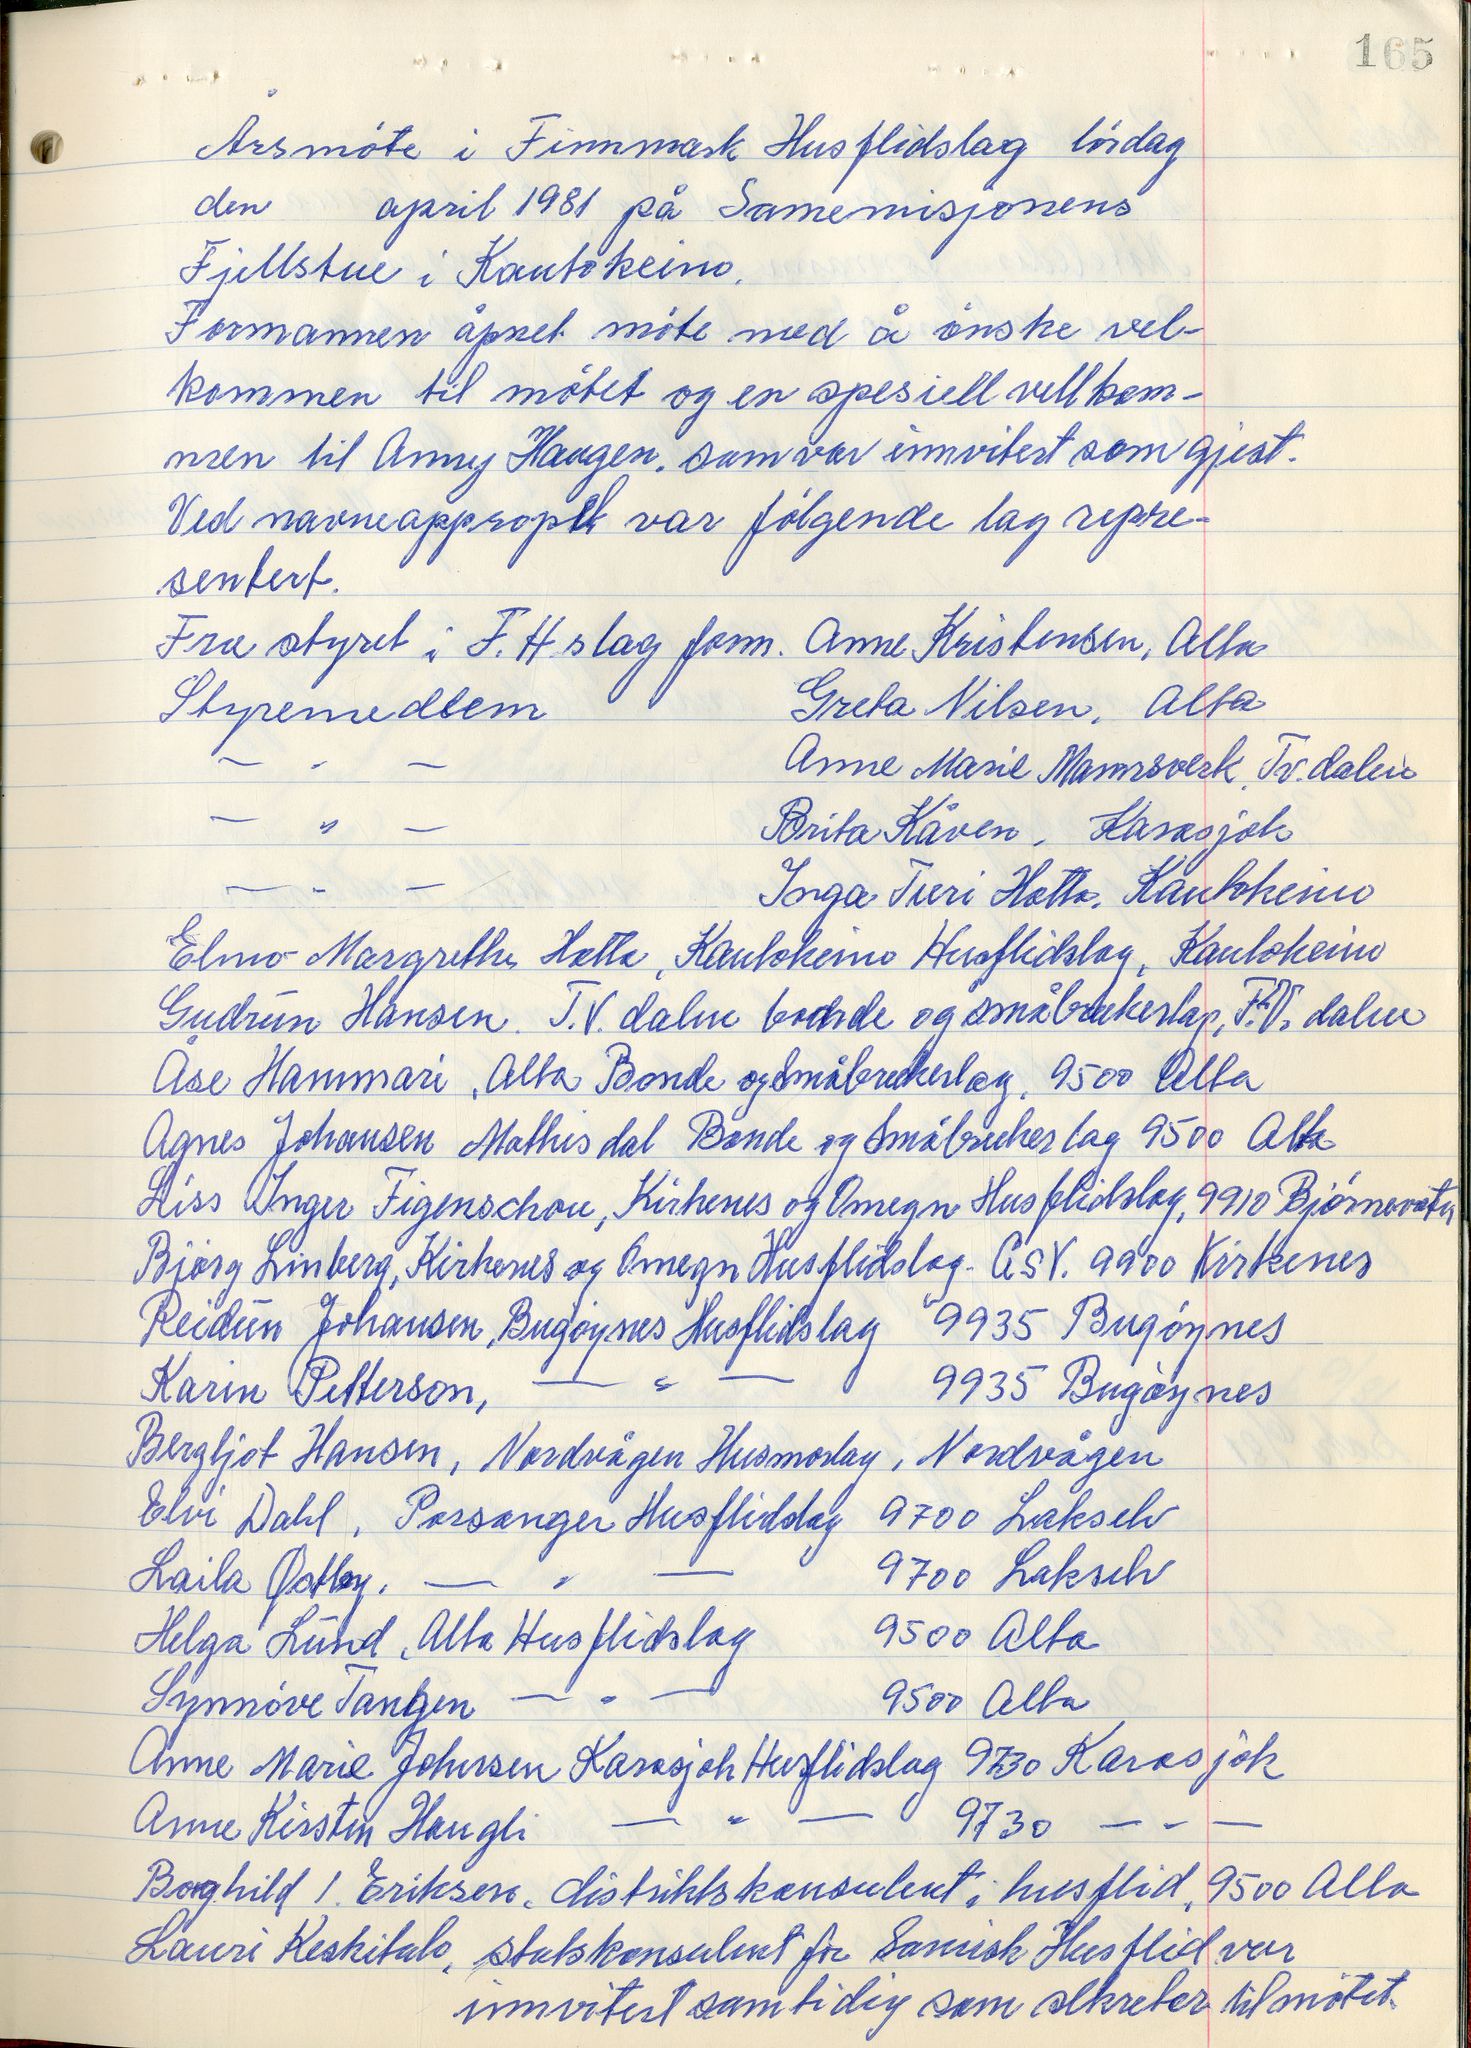 165
Årsmöte i Finnmark Husflidslag lördag
den april 1981 på Samemisjonens
Fjellstue i Kautokeino.
Formannen åpnet möte med å önske vel-
kommen til mötet og en spesiell vellkom-
men til Anny Haugen. som var innvitert som gjest.
Ved navneappropk var fölgende lag repre-
sentert.
Fra styret i F.H slag form. Anne Kristensen, Alta
Styremedlem Greta Nilsen, Alta
— " — Anne Marie Mannsverk, Tv. dalen
— " — Brita Kåven, Karasjok
— " — Inga Turi Hætta, Kautokeino
Elma Margrethe Hætta, Kautokeino Husflidslag, Kautokeino
Gudrun Hansen. T.V. dalen bonde og småbrukerlag, T.V. dalen
Åse Hammari, Alta Bonde og Småbrukerlag, 9500 Alta
Agnes Johansen Mathisdal Bonde og Småbrukerlag 9500 Alta
Liss Inger Figenschou, Kirkenes og Omegn Husflidslag, 9910 Bjørnevatn
Björg Linberg, Kirkenes og Omegn Husflidslag. ASV. 9900 Kirkenes
Reidun Johansen, Bugöynes Husflidslag 9935 Bugöynes
Karin Petterson, — " — 9935 Bugöynes
Bergljot Hansen, Nordvågen Husmorlag, Nordvågen
Elvi Dahl, Porsanger Husflidslag 9700 Lakselv
Laila Østby. — " — 9700 Lakselv
Helga Lund, Alta Husflidslag 9500 Alta
Synnöve Tangen — " — 9500 Alta
Anne Marie Johnsen Karasjok Husflidslag 9730 Karasjok
Anne Kirsten Haugli — " — 9730 — " —
Borghild I. Eriksen, distriktskonsulent i husflid, 9500 Alta
Lauri Keskitalo, statskonsulent for Samisk Husflid var
innvitert samtidig som sekretær til mötet.